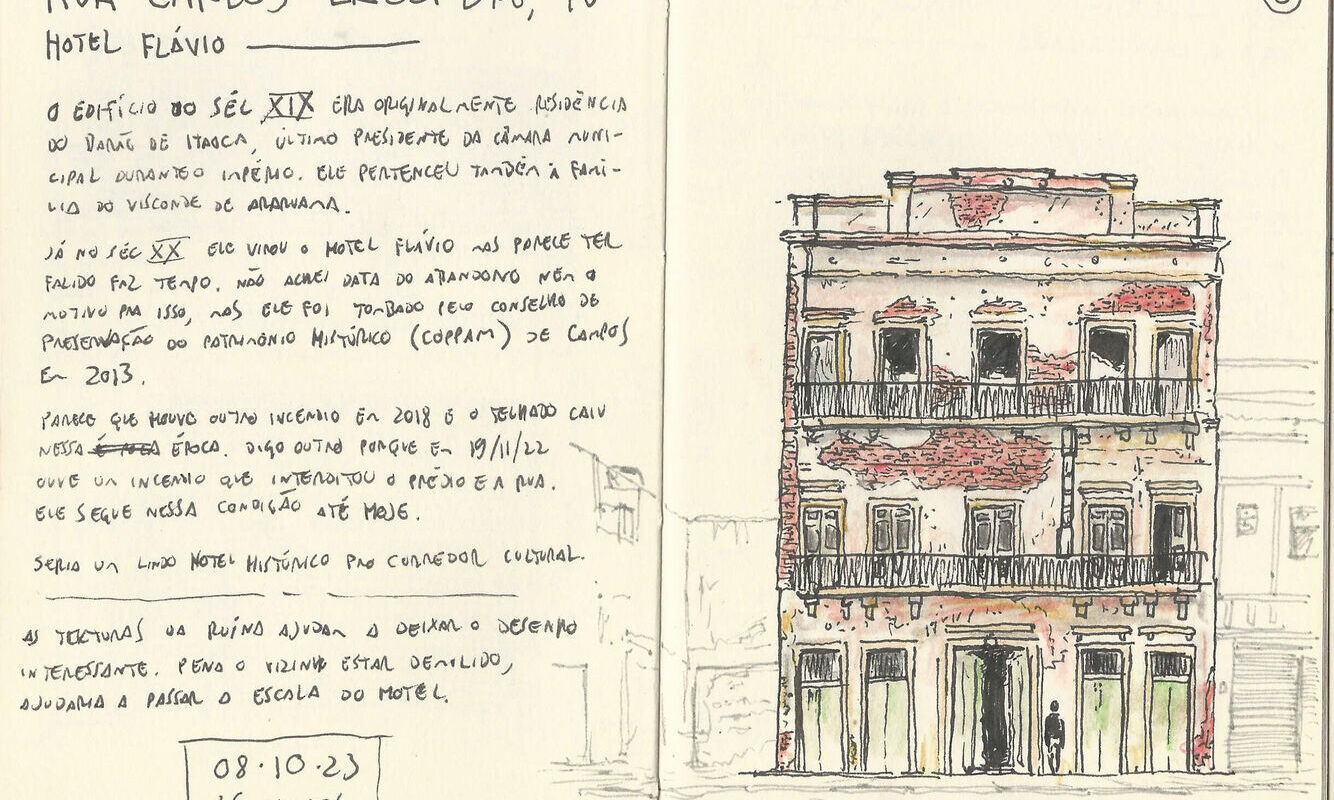 RUA CARLOS
HOTEL FLÁVIO
O EDIFÍCIO DO SÉC XIX ERA ORIGINALMENTE RESIDÊNCIA
DO BARÃO DE ITAOCA, ÚLTIMO PRESIDENTE DA CÂMARA MUNI-
CIPAL DURANTE O IMPÉRIO. ELE PERTENCEU TAMBÉM À FAMÍ-
LIA DO VISCONDE DE ARARUAMA.
JÁ NO SÉC XX ELE VIROU O HOTEL FLÁVIO MAS PARECE TER
FALIDO FAZ TEMPO. NÃO ACHEI DATA DO ABANDONO NEM O
MOTIVO PRA ISSO, MAS ELE FOI TOMBADO PELO CONSELHO DE
PRESERVAÇÃO DO PATRIMÔNIO HISTÓRICO (COPPAM) DE CAMPOS
EM 2013.
PARECE QUE HOUVE OUTRO INCENDIO EM 2018 E O TELHADO CAIU
NESSA ÉPOCA. DIGO OUTRO PORQUE EM 19/11/22
OUVE UM INCENDIO QUE INTERDITOU O PRÉDIO E A RUA.
ELE SEGUE NESSA CONDIÇÃO ATÉ HOJE.
SERIA UM LINDO HOTEL HISTÓRICO PRO CORREDOR CULTURAL.
AS TEXTURAS DA RUÍNA AJUDAM A DEIXAR O DESENHO
INTERESSANTE. PENA O VIZINHO ESTAR DEMOLIDO,
AJUDARIA A PASSAR A ESCALA DO HOTEL.
08.10.23